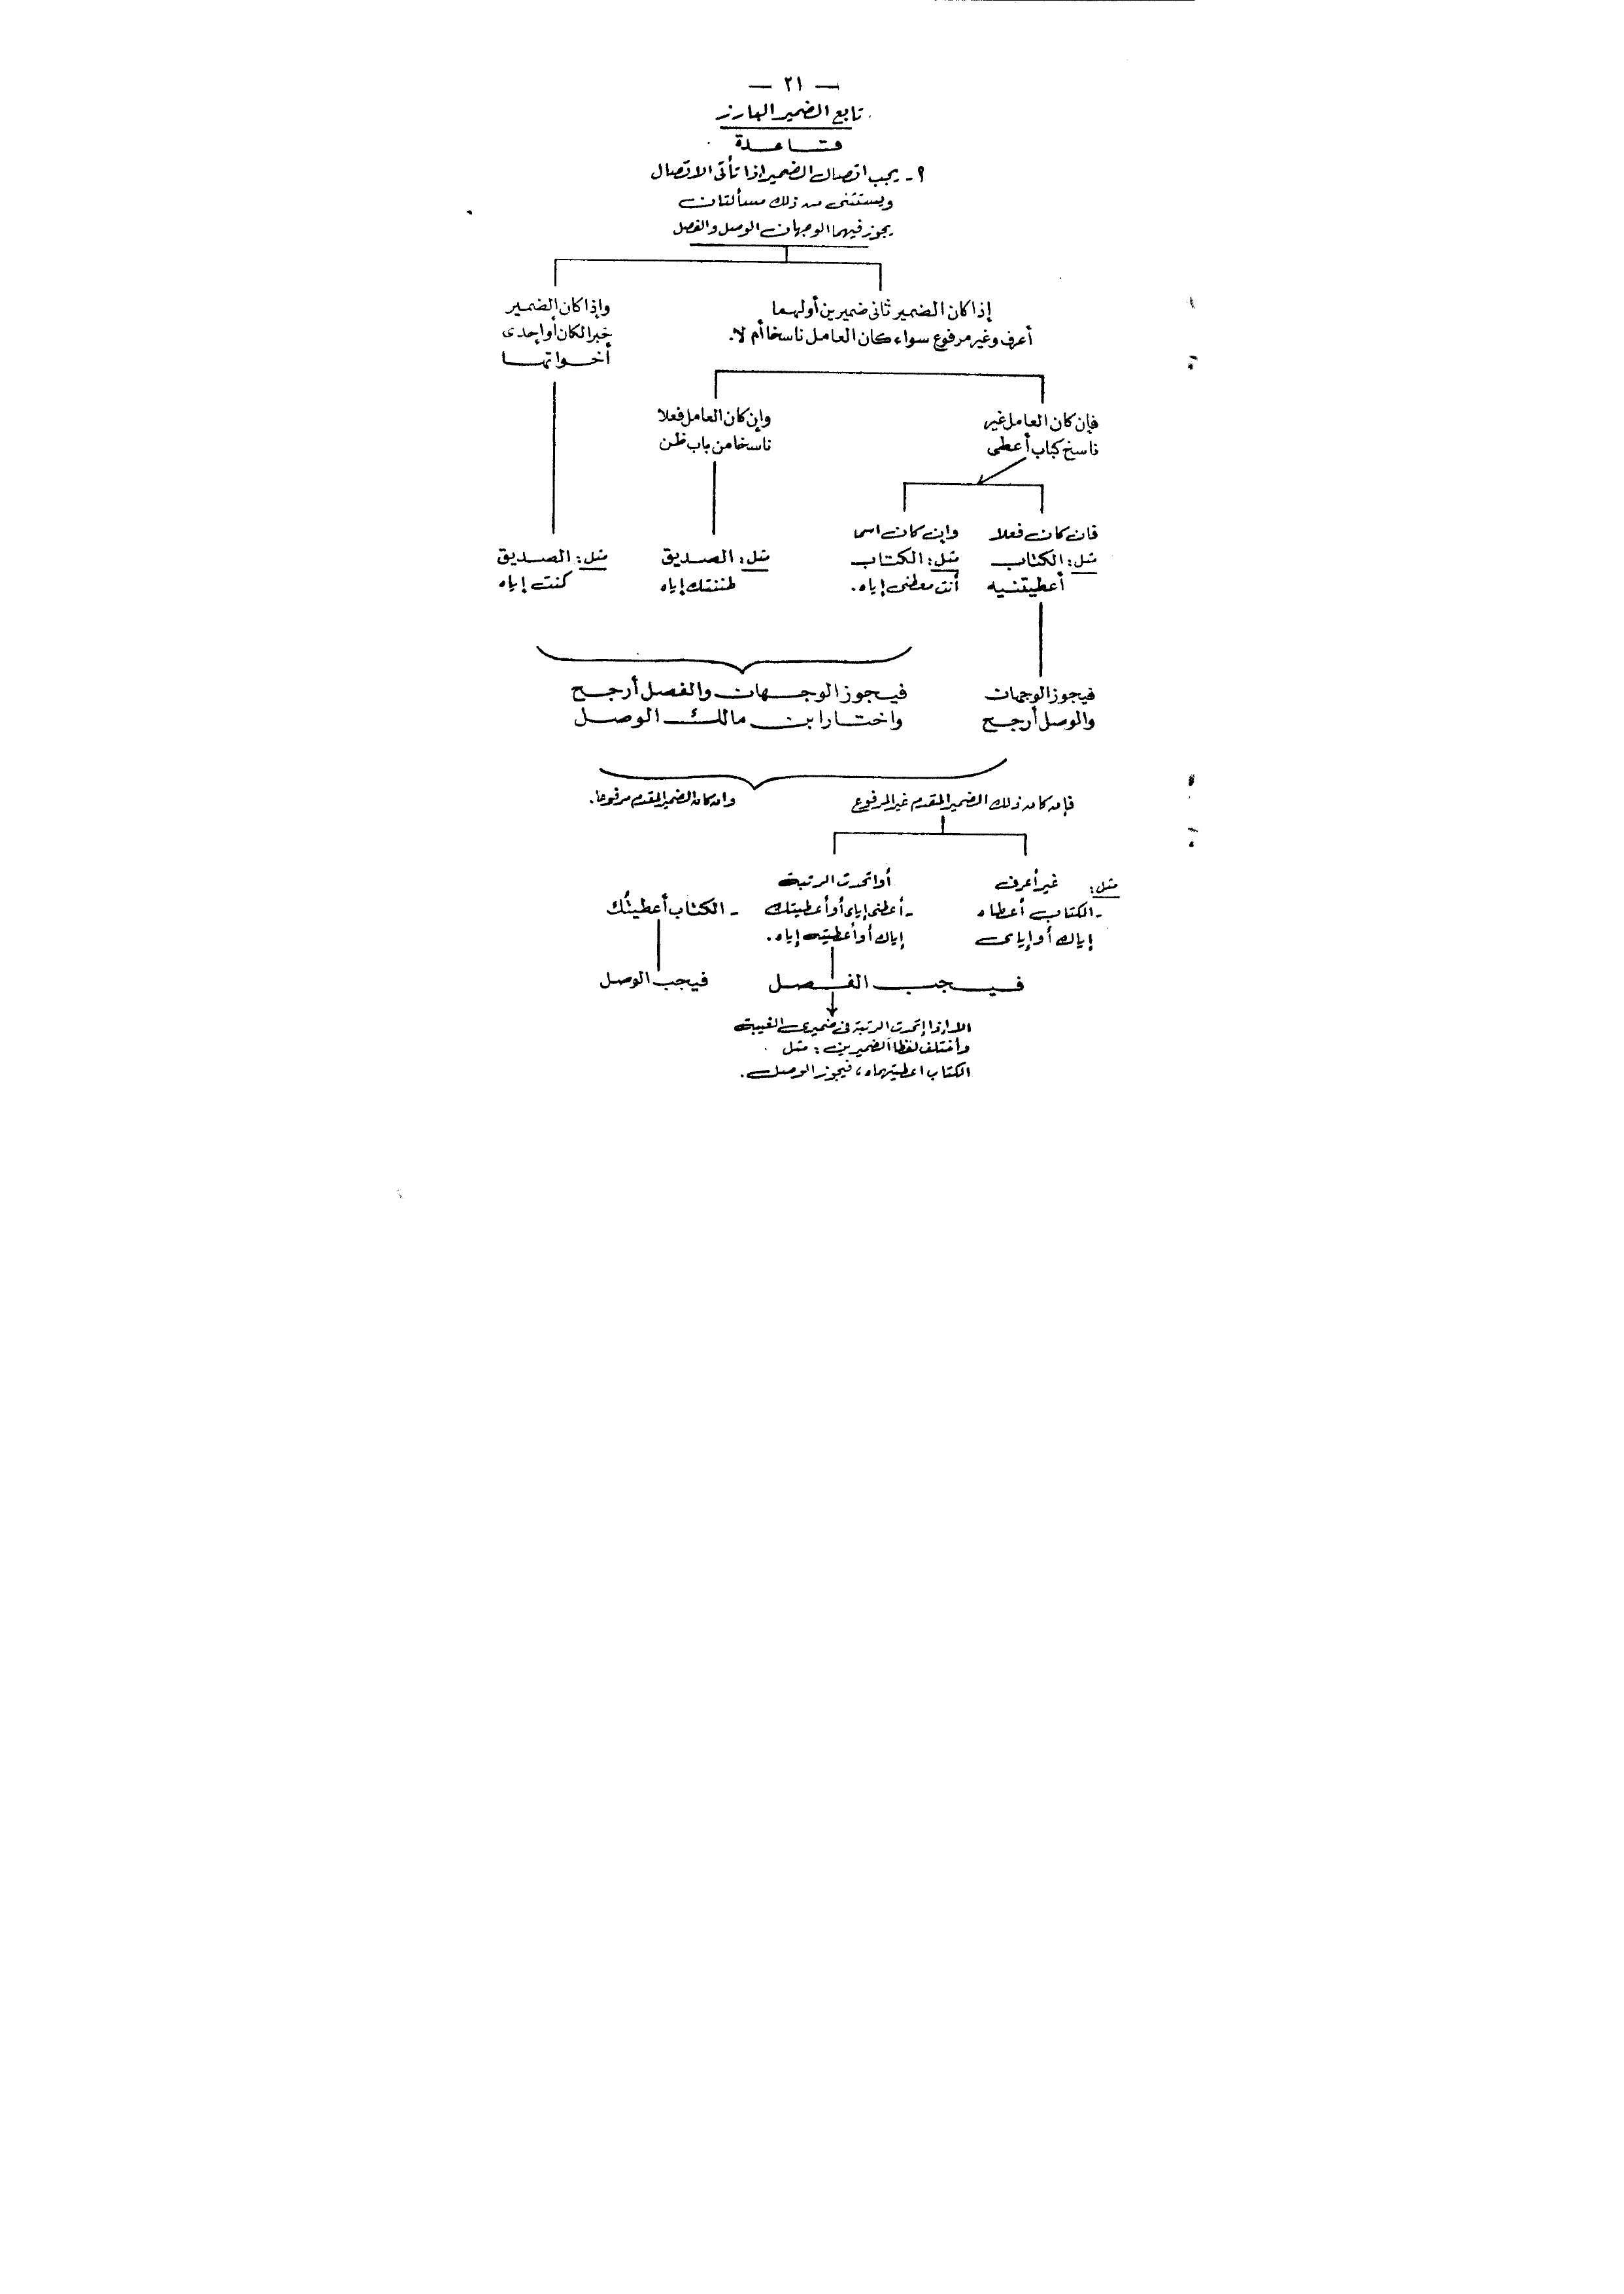 — ٢١ —
تابع الضمير البارز
قاعدة
٢ـ يجب اتصال الضمير إذا تأتى الاتصال
ويستثنى من ذلك مسألتان
يجوز فيهما الوجهان الوصل والفصل
إذا كان الضمير ثانى ضميرين أولهما
أعرف وغير مرفوع سواء كان العامل ناسخا أم لا.
وإذا كان الضمير
خبرا لكان أو إحدى
أخواتها
فإن كان العامل غير
ناسخ كباب أعطى
وإن كان العامل فعلا
ناسخا من باب ظن
فان كان فعلا
مثل: الكتاب
أعطيتنيه
وإن كان اسما
مثل: الكتاب
أنت معطنى إياه.
مثل: الصديق
ظننتك إياه
مثل: الصديق
كنت إياه
فيجوز الوجهان
والوصل أرجح
فيجوز الوجهان والفصل أرجح
واختار ابن مالك الوصل
فإن كان ذلك الضمير المقدم غير المرفوع
وان كان الضمير المقدم مرفوعا.
مثل: غير أعرف
ـ الكتاب أعطاه
إياك أو إياى
أو اتحدت الرتبة
ـ أعطنى إياى أو أعطيتك
إياك أو أعطيته إياه.
ـ الكتاب أعطيتُك
فيجب الفصل
فيجب الوصل
الا إذا إتحدت الرتبة فى ضميرى الغيبة
وأختلف لفظا الضميرين: مثل
الكتاب اعطيتهماه، فيجوز الوصل.